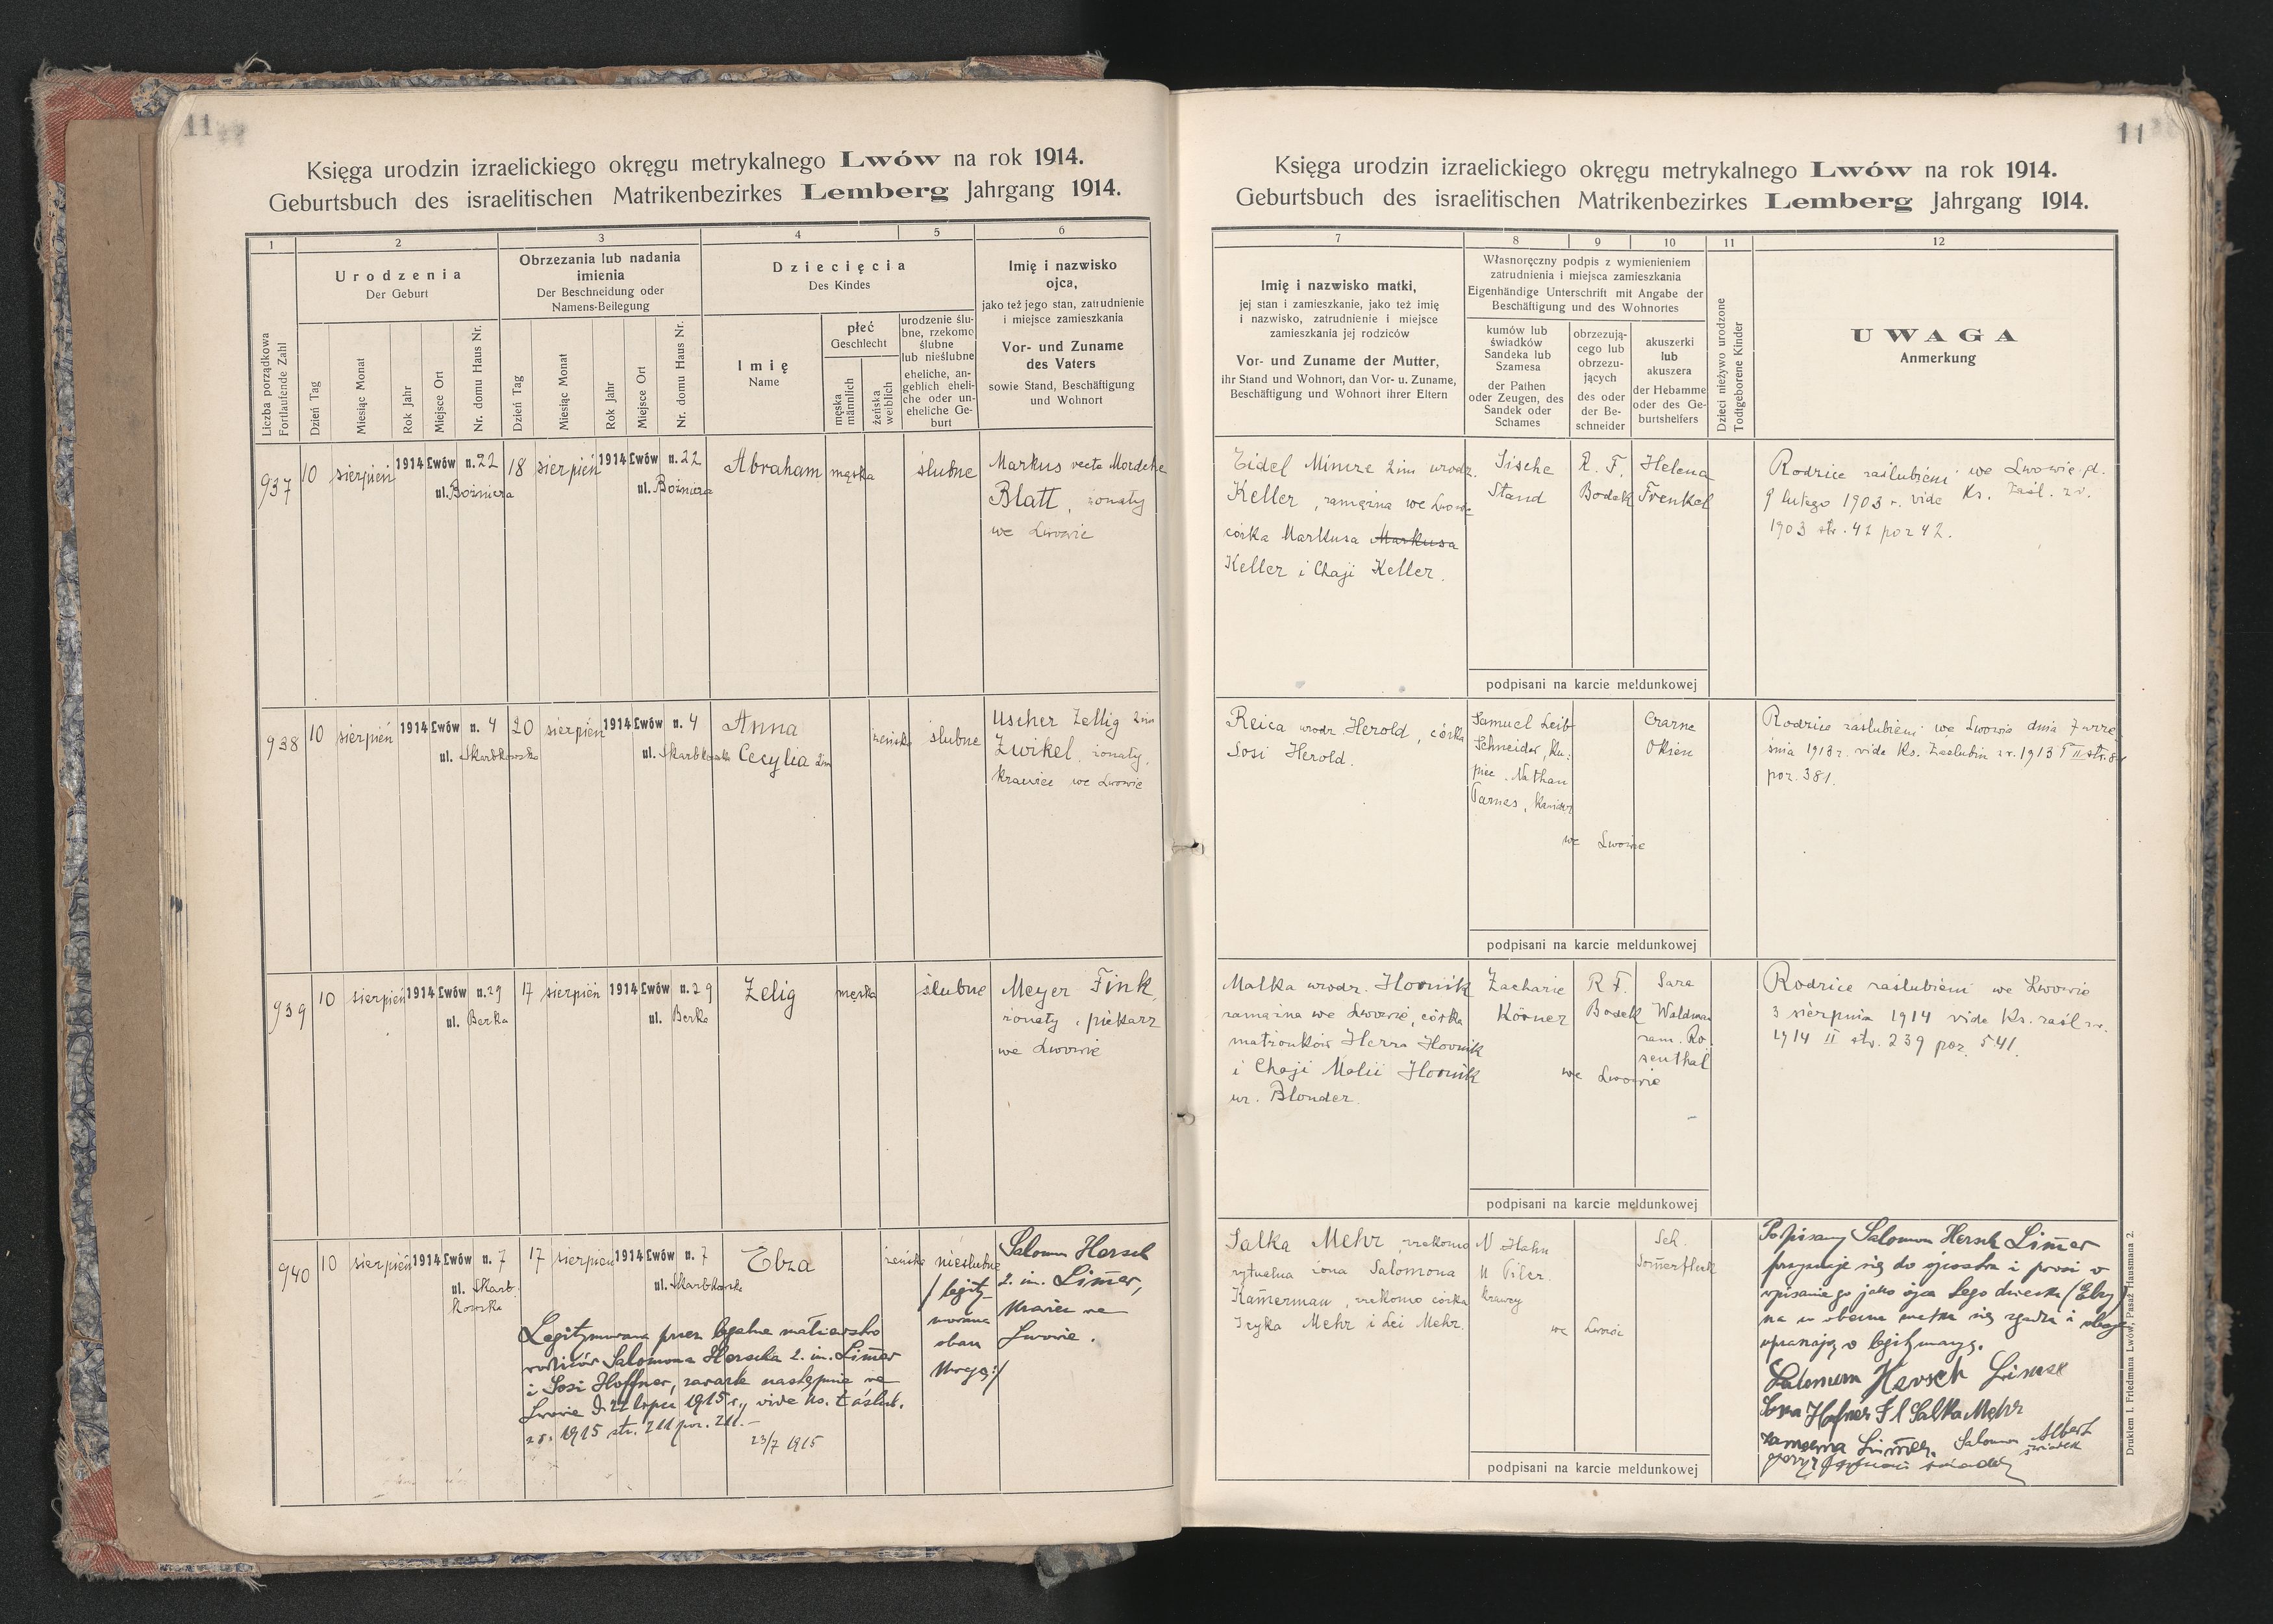 11
Księga urodzin izraelickiego okręgu metrykalnego Lwów na rok 1914.
Geburtsbuch des israelitischen Matrikenbezirkes Lemberg Jahrgang 1914.
1 2 3 4 5 6
Liczba porządkowa
Fortlaufende Zahl
Urodzenia
Der Geburt
Dzień Tag
Miesiąc Monat
Rok Jahr
Miejsce Ort
Nr. domu Haus Nr.
Obrzezania lub nadania
imienia
Der Beschneidung oder
Namens-Beilegung
Dzień Tag
Miesiąc Monat
Rok Jahr
Miejsce Ort
Nr. domu Haus Nr.
Dziecięcia
Des Kindes
Imię
Name
płeć
Geschlecht
męska
männlich
żeńska
weiblich
urodzenie ślu-
bne, rzekomo
ślubne
lub nieślubne
eheliche, an-
geblich eheli-
che oder un-
eheliche Ge-
burt
Imię i nazwisko
ojca,
jako też jego stan, zatrudnienie
i miejsce zamieszkania
Vor- und Zuname
des Vaters
sowie Stand, Beschäftigung
und Wohnort
937 10 sierpień 1914 Lwów n. 22 18 sierpień 1914 Lwów n. 22 Abraham męska ślubne Markus recte Mordche
ul. Boźnicza ul. Boźnicza Blatt, żonaty
we Lwowie
938 10 sierpień 1914 Lwów n. 4 20 sierpień 1914 Lwów n. 4 Anna żeńska ślubne Uscher Zellig 2im
ul. Skarbkowska ul. Skarbkowska Cecylia 2im Zwikel, żonaty,
krawiec we Lwowie
939 10 sierpień 1914 Lwów n. 29 17 sierpień 1914 Lwów n. 29 Zelig męska ślubne Meyer Fink,
ul. Berka ul. Berka żonaty, piekarz
we Lwowie
940 10 sierpień 1914 Lwów n. 7 17 sierpień 1914 Lwów n. 7 Elza żeńska nieślubne Salomon Hersch
ul. Skarb- ul. Skarbkowska /legity- 2. im. Lim̄er,
kowska mowana krawiec we
obacz Lwowie.
Uwagę:/
Legitymowana przez legalne małżeństwo
rodziców Salomona Herscha 2. im. Lim̄er
i Sosi Hoffner, zawarte następnie we
Lwowie d. 22 lipca 1915 r., vide ks. zaślub.
zr. 1915 str. 211 poz. 211.-
23/7 1915
11
Księga urodzin izraelickiego okręgu metrykalnego Lwów na rok 1914.
Geburtsbuch des israelitischen Matrikenbezirkes Lemberg Jahrgang 1914.
7 8 9 10 11 12
Imię i nazwisko matki,
jej stan i zamieszkanie, jako też imię
i nazwisko, zatrudnienie i miejsce
zamieszkania jej rodziców
Vor- und Zuname der Mutter,
ihr Stand und Wohnort, dan Vor- u. Zuname,
Beschäftigung und Wohnort ihrer Eltern
Własnoręczny podpis z wymienieniem
zatrudnienia i miejsca zamieszkania
Eigenhändige Unterschrift mit Angabe der
Beschäftigung und des Wohnortes
kumów lub
świadków
Sandeka lub
Szamesa
der Pathen
oder Zeugen, des
Sandek oder
Schames
obrzezują-
cego lub
obrzezu-
jących
des oder
der Be-
schneider
akuszerki
lub
akuszera
der Hebamme
oder des Ge-
burtshelfers
Dzieci nieżywo urodzone
Todtgeborene Kinder
UWAGA
Anmerkung
Eidel Mincze 2im urodz.
Keller, zamężna we Lwowie
córka Markusa Markusa
Keller i Chaji Keller.
Sische
Stand
R. F.
Bodek
Helena
Frenkel
Rodzice zaślubieni we Lwowie d.
9 lutego 1903 r. vide Ks. zaśl. zr.
1903 str. 42 poz 42.
podpisani na karcie meldunkowej
Reica urodz. Herold, córka
Sosi Herold.
Samuel Leib
Schneider, ku-
piec. Nathan
Parnes,
we Lwowie
Czarne
Okien
Rodzice zaślubieni we Lwowie dnia 7 wrze-
śnia 1913 r. vide Ks. Zaślubin zr. 1913 T II str. 8
poz. 381.
podpisani na karcie meldunkowej
Malka urodz. Hornik
zamężna we Lwowie, córka
małżonków Herza Hornik
i Chaji Malii Hornik
ur. Blonder.
Zacharie
Körner
R F.
Bodek
Sara
Waldman
zam. Ro-
senthal
we Lwowie
Rodzice zaślubieni we Lwowie
3 sierpnia 1914 vide Ks. zaśl zr.
1914 II str. 239 poz. 541.
podpisani na karcie meldunkowej
Salka Mehr, rzekomo
rytualna żona Salomona
Kam̄erman, rzekomo córka
Izyka Mehr i Lei Mehr.
N Hahn
U Piler.
krawcy
we Lwowie
Sch.
Som̄erfleck
Podpisany Salomon Hersch Lim̄er
przyznaje się do ojcostwa i prosi o
wpisanie go jako ojca tego dziecka (Elzy)
na co obecna matka się zgadza i oboje
upraszają o legitymację.
Salomon Hersch Limer
Sosia Hofner F l Salka Mehr
zamężna Lim̄er. Salomon Albert
świadek
podpisani na karcie meldunkowej
Drukiem I. Friedmana Lwów, Pasaż Hausmana 2.